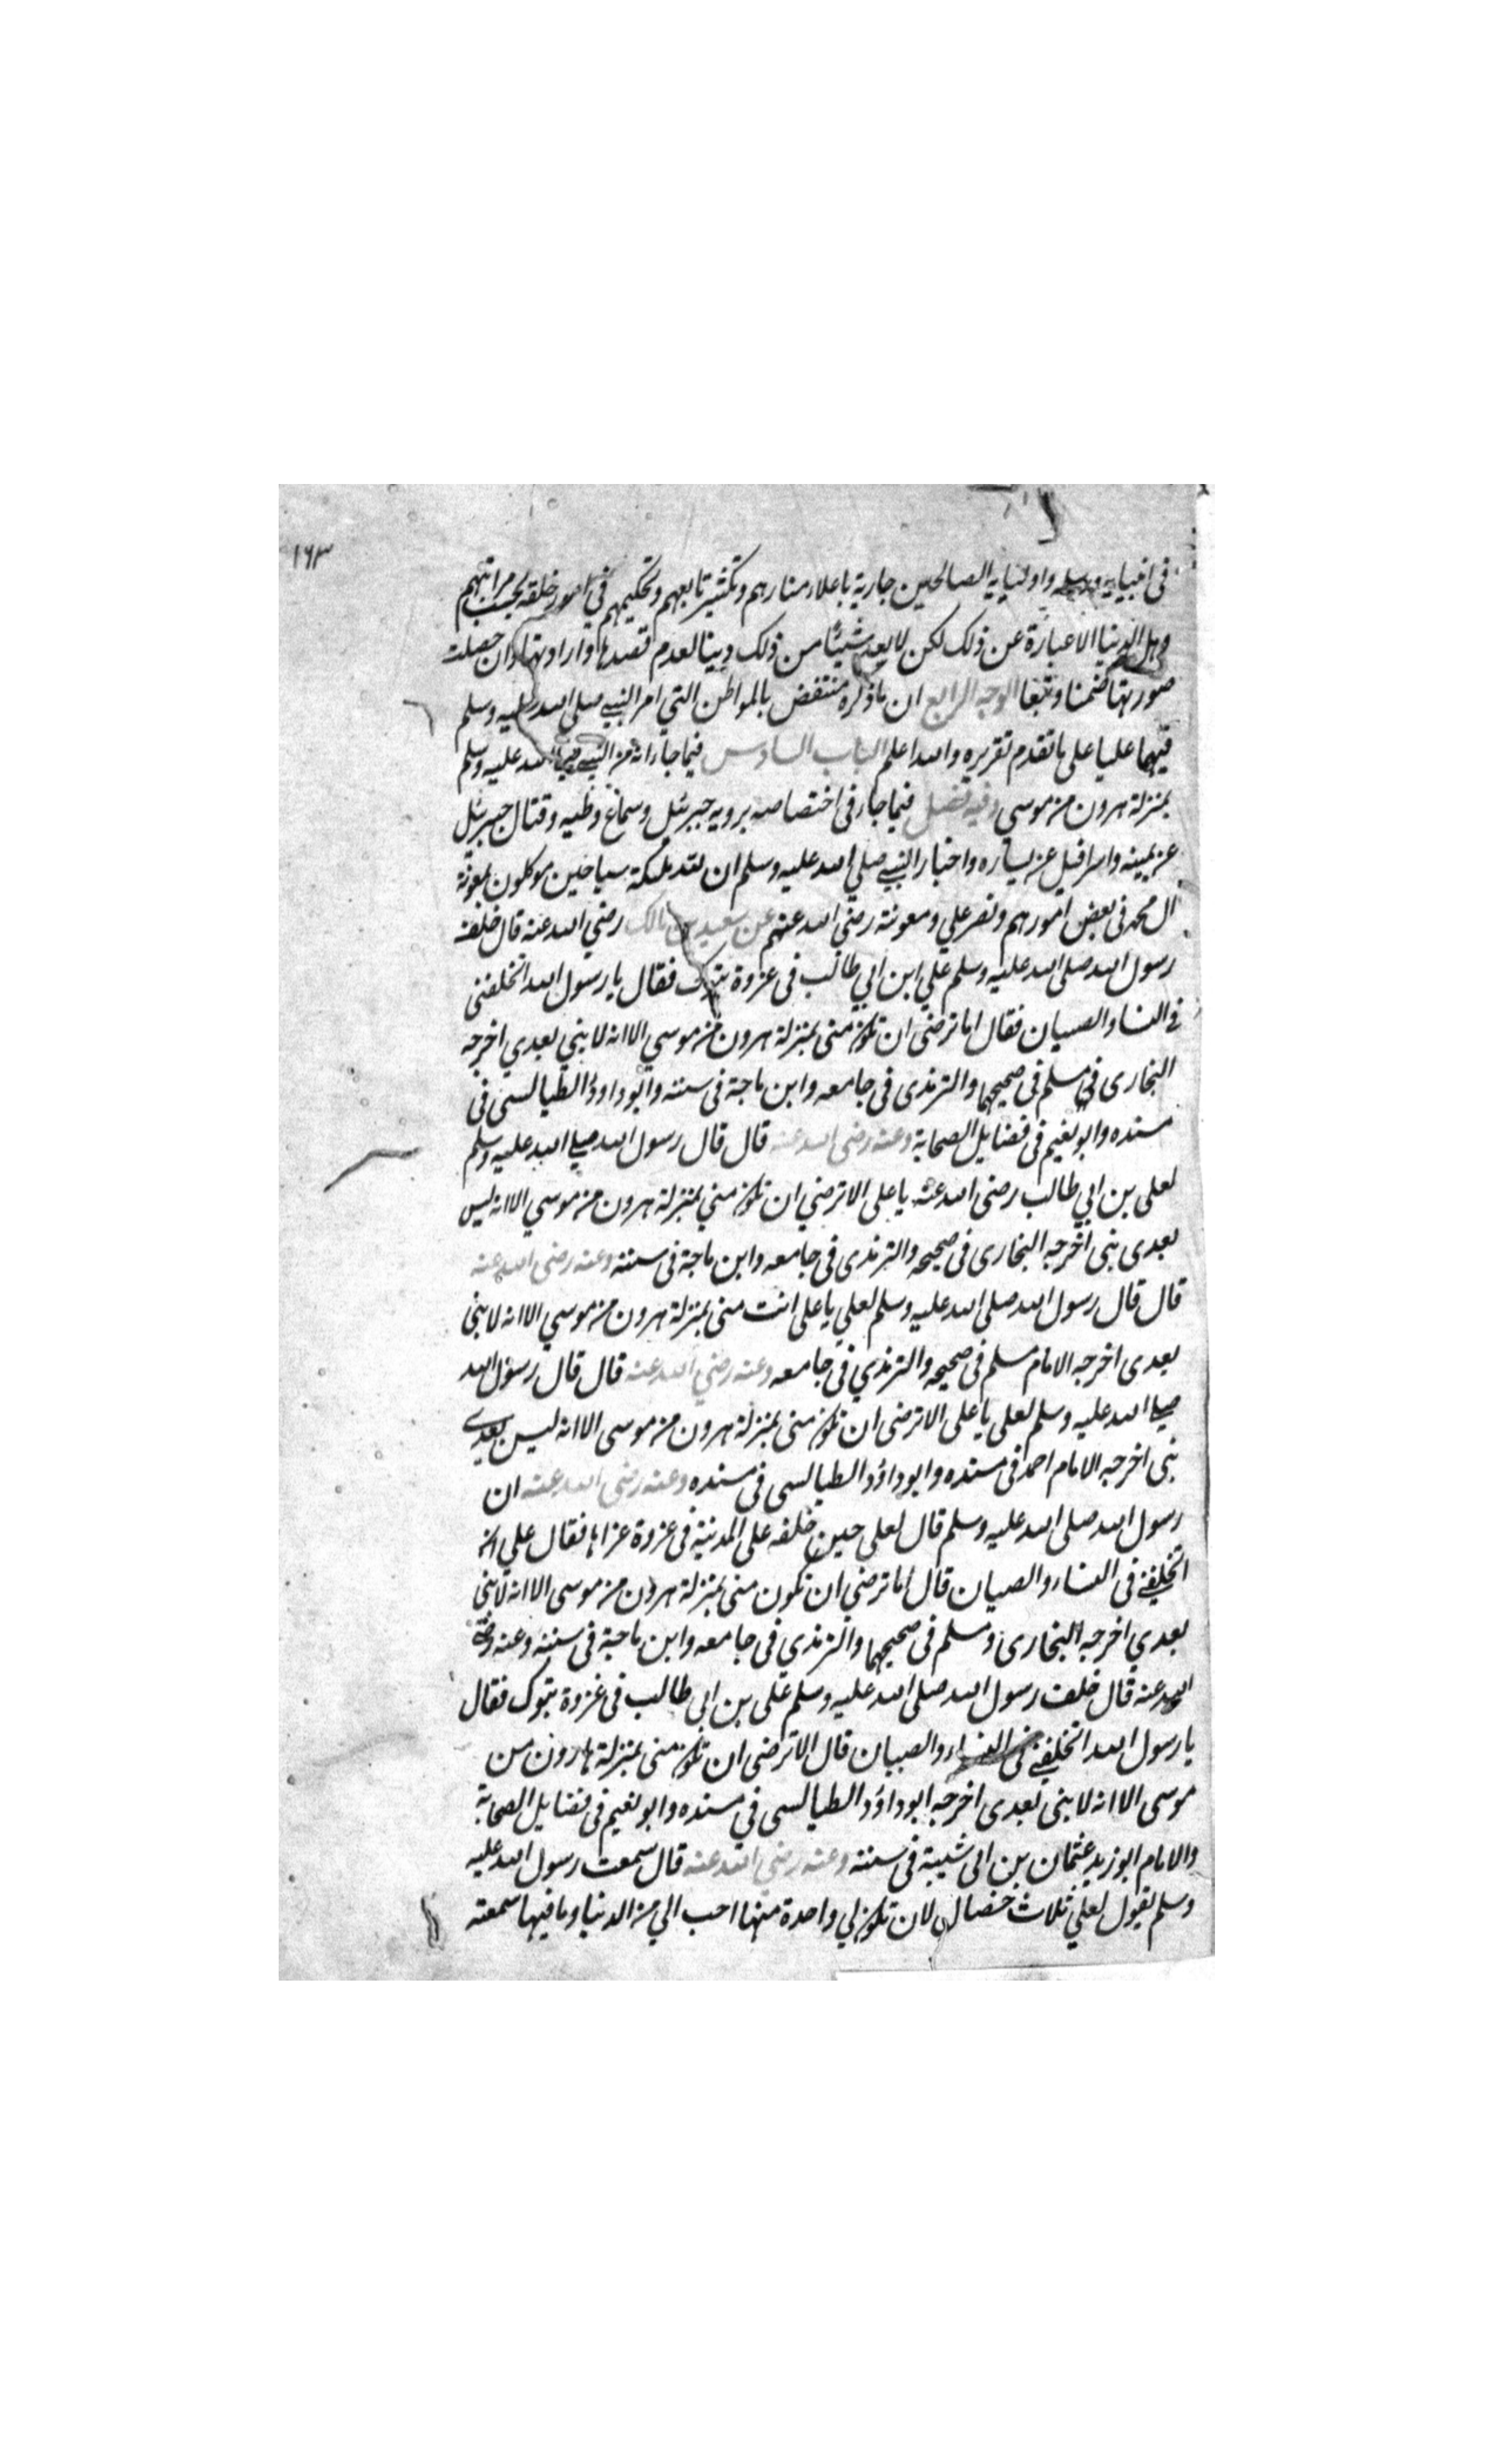 ١٦٣
فى انبيايه ورسله واوليايه الصالحين جارية باعلاء منارهم وتكثير تابعهم وتحكيمهم في امور خلقه بحسب مراتبهم
وهل الدنيا الا عبارة عن ذلك لكن لا يعد شيئا من ذلك دينا لعدم قصدها وارادتها وان حصلت
صورتها ضمنا وتبعا الوجه الرابع ان ما ذكره منتقض بالمواطن التي امر النبي صلى الله عليه وسلم
فيها عليا على ما تقدم تقريره والله اعلم الباب السادس فيما جاء انه من النبي صلى الله عليه وسلم
بمنزلة هرون من موسي وفيه فصل فيما جاء فى اختصاصه برويه جبرئيل وسماع وطيه وقتال جبرئيل
عن يمينه واسرافيل عن يساره واخبار النبي صلي الله عليه وسلم ان لله ملئكة سياحين موكلون بمعونة
ال محمد فى بعض امورهم ونصر علي ومعونته رضي الله عنهم عن سعيد بن مالك رضي الله عنه قال خلف
رسول الله صلى الله عليه وسلم علي ابن ابي طالب فى غزوة تبوك فقال يا رسول الله اتخلفنى
في النساء والصبيان فقال اما ترضى ان تكون منى بمنزلة هرون من موسي الا انه لا نبي بعدي اخرجه
البخارى ومسلم فى صحيحهما والترمذى فى جامعه وابن ماجة فى سننه وابو داود الطيالسى فى
مسنده وابو نعيم فى فضايل الصحابة وعنه رضى الله عنه قال قال رسول الله صلى الله عليه وسلم
لعلى بن ابي طالب رضى الله عنه يا على الا ترضي ان تكون مني بمنزلة هرون من موسي الا انه ليس
بعدى نبى اخرجه البخارى فى صحيحه والترمذى فى جامعه وابن ماجة فى سننه وعنه رضى الله عنه
قال قال رسول الله صلى الله عليه وسلم لعلي يا على انت منى بمنزلة هرون من موسي الا انه لا نبى
بعدى اخرجه الامام مسلم فى صحيحه والترمذي فى جامعه وعنه رضي الله عنه قال قال رسول الله
صلى الله عليه وسلم لعلى يا على الا ترضى ان تكون منى بمنزلة هرون من موسى الا انه ليس بعدي
نبى اخرجه الامام احمد فى مسنده وابو داؤد الطيالسى فى مسنده وعنه رضى الله عنه ان
رسول الله صلى الله عليه وسلم قال لعلى حين خلفه على المدينة فى غزوة غزاها فقال علي
اتخلفني فى النساء والصبيان قال اما ترضي ان تكون منى بمنزلة هرون من موسى الا انه لا نبى
بعدي اخرجه البخارى ومسلم فى صحيحهما والترمذي فى جامعه وابن ماجة فى سننه وعنه رضي
الله عنه قال خلف رسول الله صلى الله عليه وسلم على بن ابى طالب فى غزوة تبوك فقال
يا رسول الله اتخلفني في النساء والصبيان قال الا ترضى ان تكون منى بمنزلة هارون من
موسى الا انه لا نبى بعدى اخرجه ابو داؤد الطيالسى في مسنده وابو نعيم فى فضايل الصحابة
والامام ابو زيد عثمان بن ابى شيبة فى سننه وعنه رضي الله عنه قال سمعت رسول الله عليه
وسلم يقول لعلي ثلاث خصال لان تكون لي واحدة منها احب الي من الدنيا وما فيها سمعته